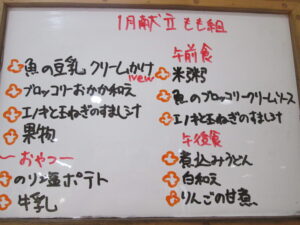 1月献立 もも組
魚の豆乳クリームかけ
new
ブロッコリーおかか和え
エノキと玉ねぎのすまし汁
果物
〜おやつ〜
のり塩ポテト
牛乳
午前食
米粥
魚のブロッコリークリームソース
エノキと玉ねぎのすまし汁
午後食
煮込みうどん
白和え
りんごの甘煮